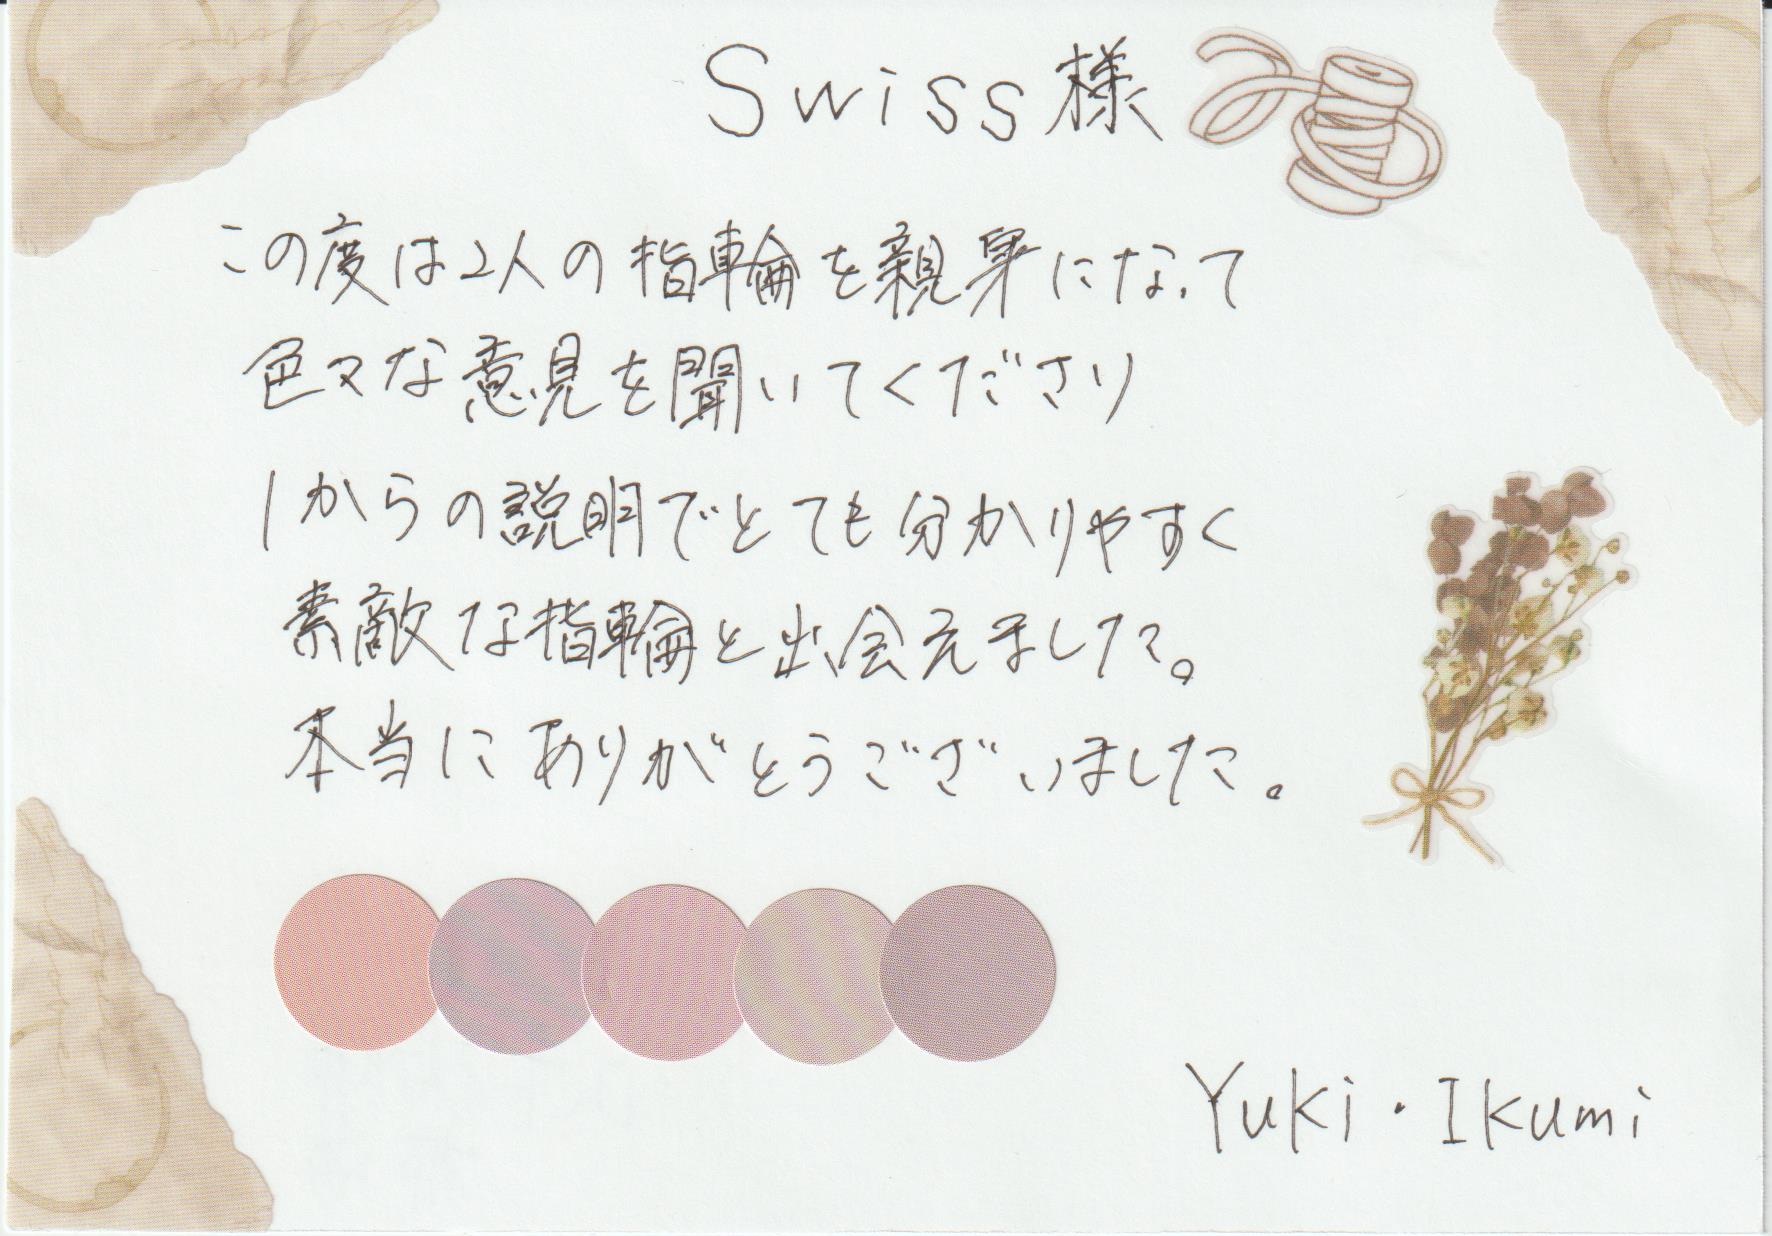 Swiss様
この度は2人の指輪を親身になって
色々な意見を聞いてくださり
1からの説明でとても分かりやすく
素敵な指輪と出会えました。
本当にありがとうございました。
Yuki・Ikumi